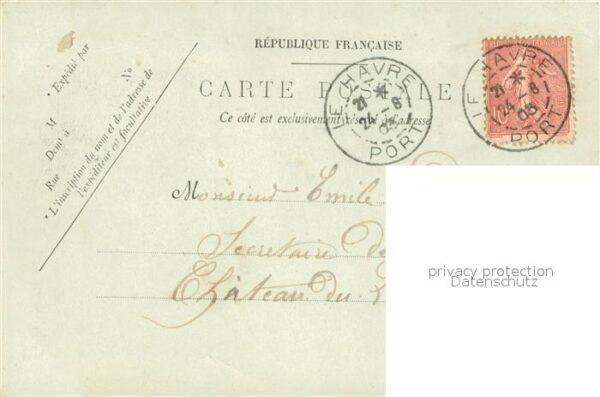 RÉPUBLIQUE FRANÇAISE
CARTE POSTALE
Ce côté est exclusivement réservé à l'adresse
Expédié par
M
Demt à
Rue
No
* L'inscription du nom et de l'adresse de
l'expéditeur est facultative
LE HAVRE
21 *
24 - 8
03
PORT
LE HAVRE
21 *
24 - 8
03
PORT
10
Monsieur Emile
Secretaire de
Château du
privacy protection
Datenschutz